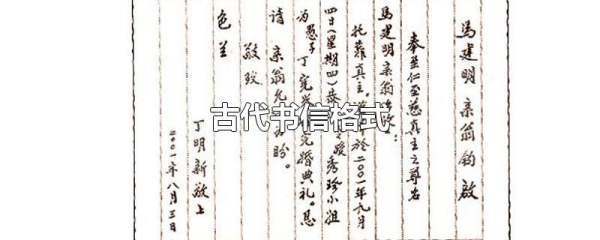 马建明 亲翁 钧啟
奉至仁至慈真主之尊名
马建明 亲翁
托靠真主。於二〇〇一年九月
四日(星期四)恭之媛秀珍小姐
为愚子丁宽兴完婚典礼。恳
请 亲翁允为盼。
敬致
色兰
丁明新敬上
二〇〇一年八月三日
古代书信格式